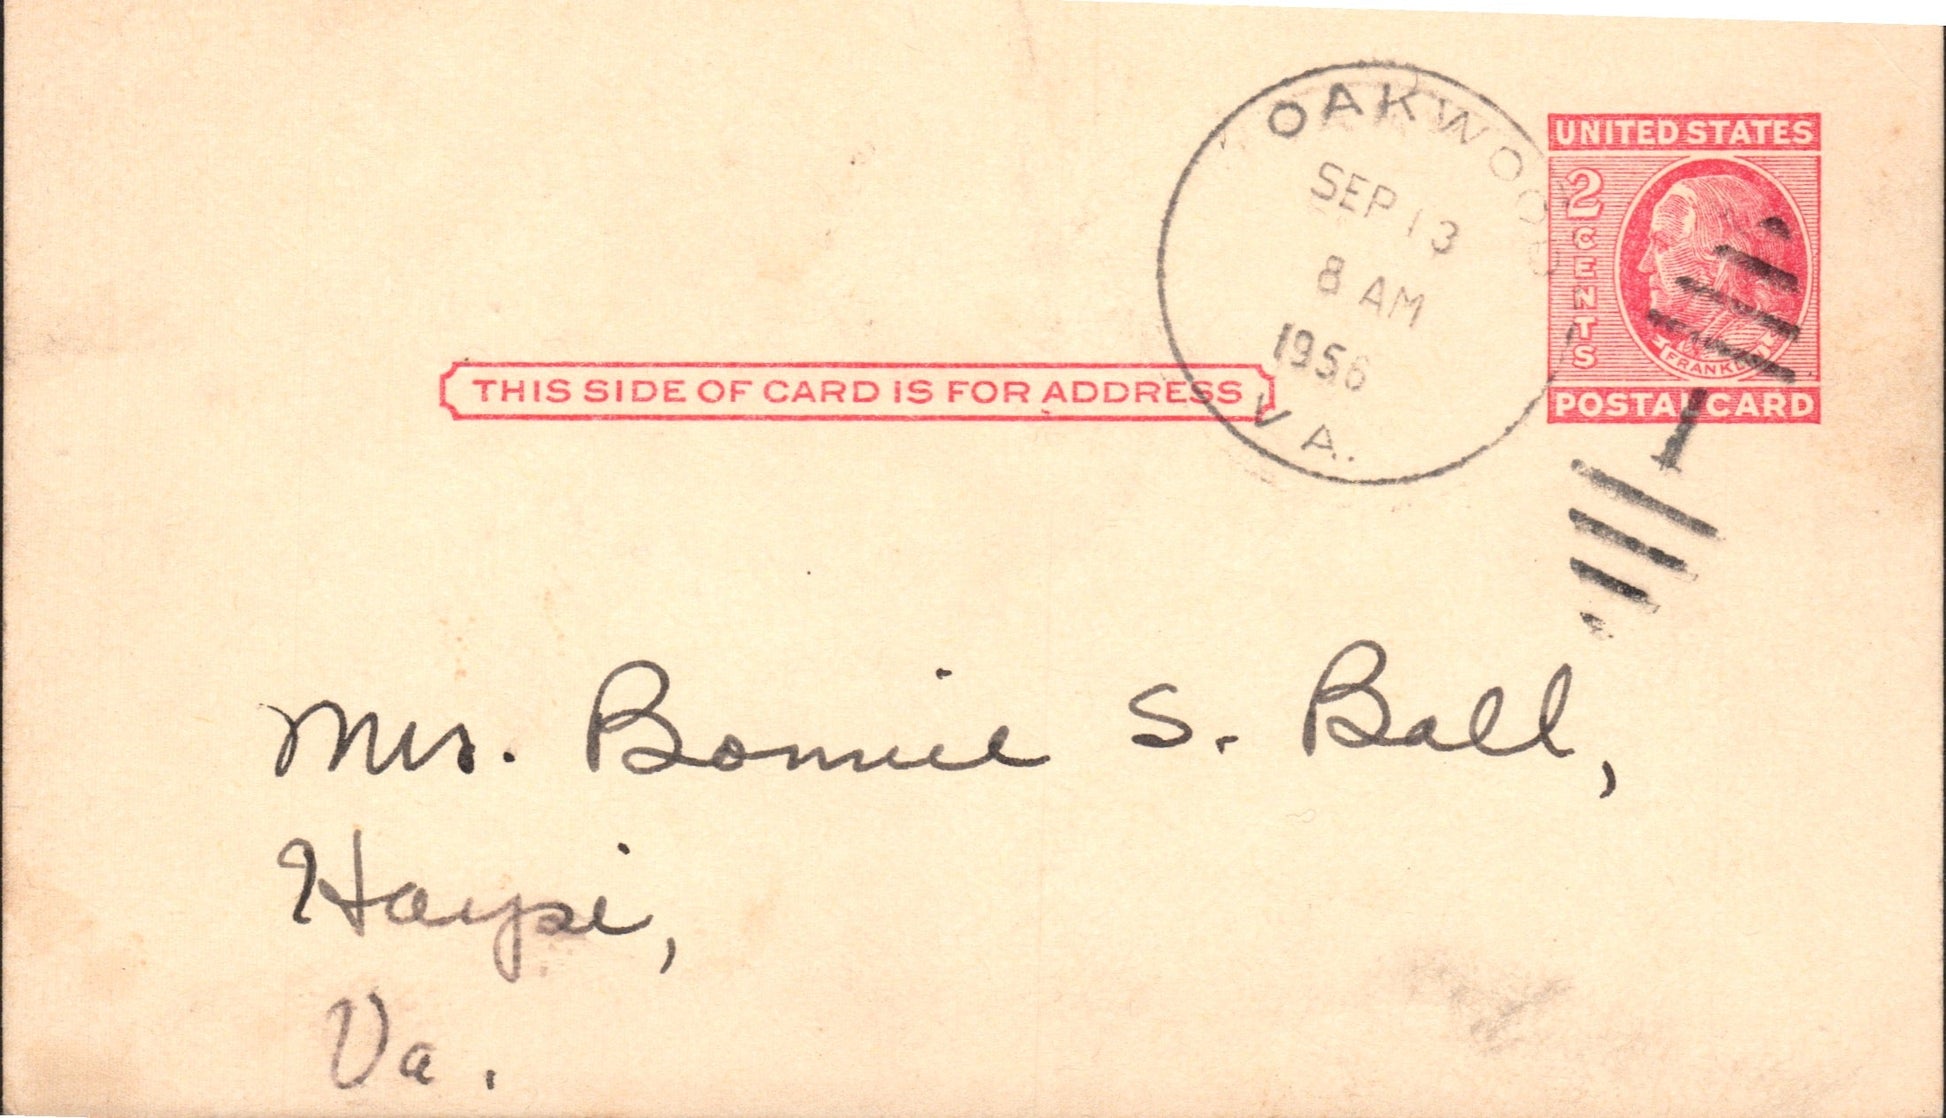 OAKWOOD
SEP 13
8 AM
1956
VA.
UNITED STATES
2 CENTS
FRANKLIN
POSTAL CARD
1
THIS SIDE OF CARD IS FOR ADDRESS
Mrs. Bonnie S. Ball,
Haysi,
Va.